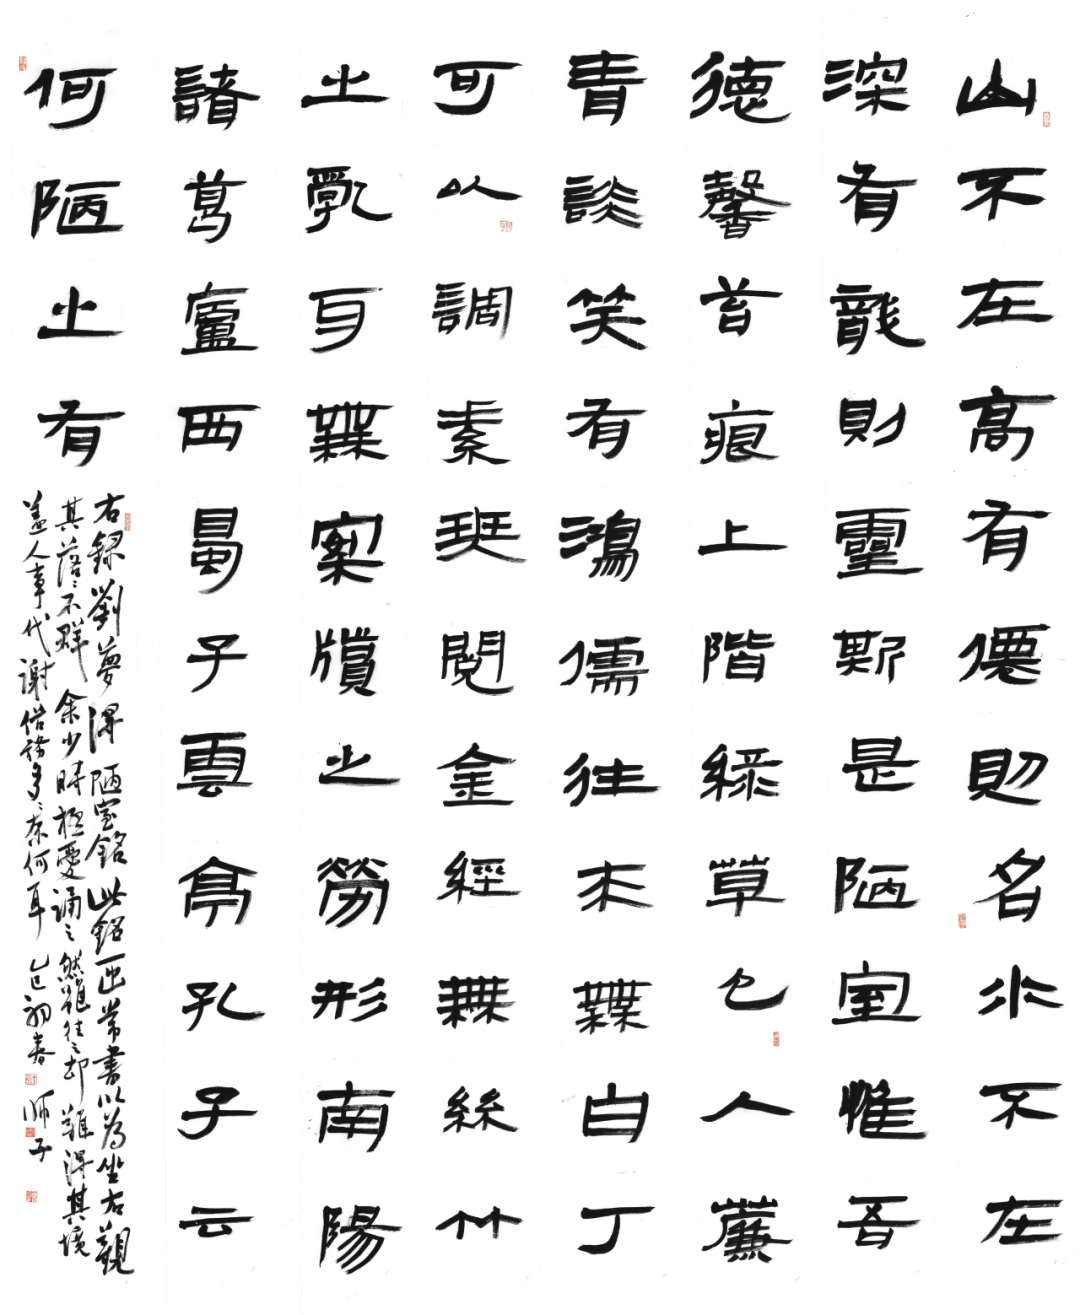 山不在高有僊則名水不在
深有龍則靈斯是陋室惟吾
德馨苔痕上階綠草色入簾
青談笑有鴻儒往来無白丁
可以調素琴閱金經無絲竹
之亂耳無案牘之勞形南陽
諸葛廬西蜀子雲亭孔子云
何陋之有
右錄劉夢得陋室銘此銘一出常書以為坐右觀
其落〻不群余少時極愛誦之然雖往〻却難得其境
蓋人事代謝俗務多〻奈何耳乙巳初春師子